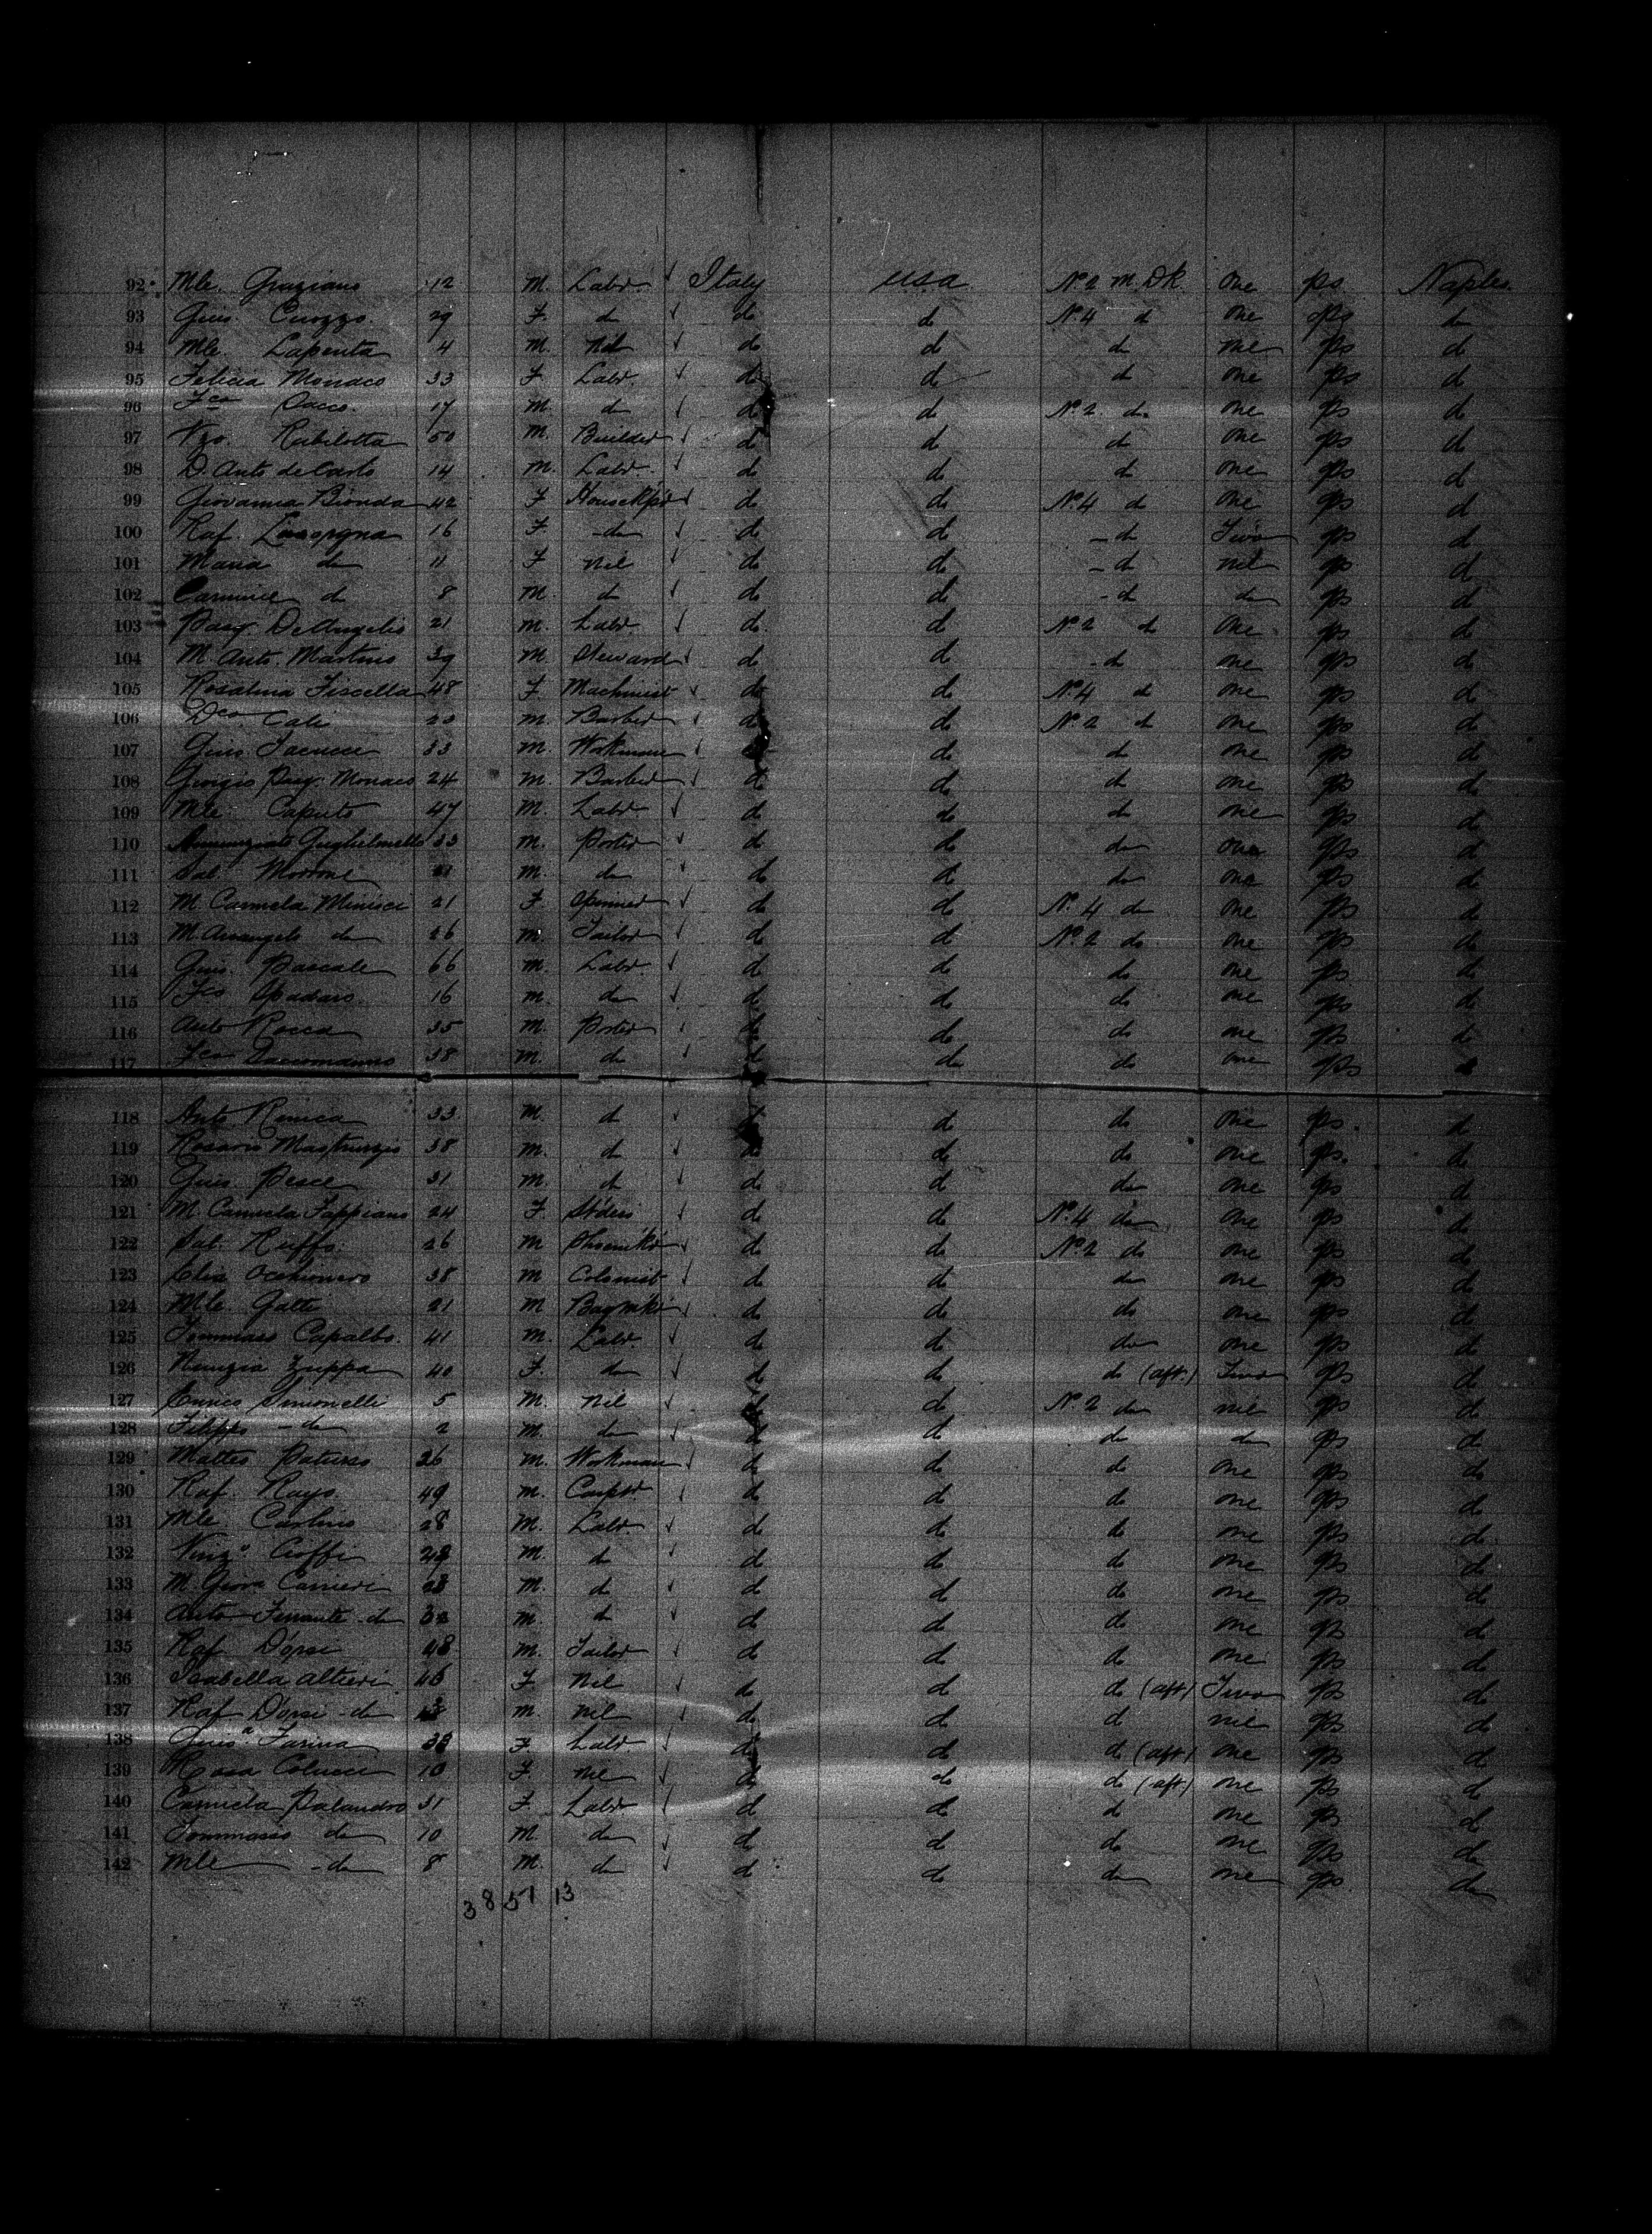 92 Mle. Graziano 12 M. Labr. ✓ Italy USA No 2 M. Dk. One ps Naples
93 Gius. Cuozzo. 29 F. do ✓ do do No 4 do One ps do
94 Mle. Lapenta 4 M. Nil ✓ do do do One ps do
95 Felicia Monaco 33 F. Labr. ✓ do do do One ps do
96 Fco 17 M. do ✓ do do No 2 do One ps do
97 Vzo. Rubilotta 50 M. Builder ✓ do do do One ps do
98 D. Anto de Carlo 14 M. Labr. ✓ do do do One ps do
99 Giovanna Bionda 42 F Housekpr ✓ do do No 4 do One ps do
100 Raf. 16 F - do ✓ do do - do Two ps do
101 Maria do 11 F Nil ✓ do do - do nil ps do
102 Carmine do 8 M. do ✓ do do - do do ps do
103 Pasq. DeAngelis 21 M. Labr. ✓ do do No 2 do One ps do
104 M. Anto. Martino 39 M. Steward ✓ do do - do One ps do
105 Rosalina Fiscella 48 F Machinist ✓ do do No 4 do One ps do
106 Dco Cali M. Barber ✓ do do No 2 do One ps do
107 Gius. Iacucci 33 M. Workman ✓ do do do One ps do
108 Giorgio Pasq. Monaco 24 M. Barber ✓ do do do One ps do
109 Mle. Caputo 47 M. Labr. ✓ do do do One ps do
110 Annunziato Guglielmello 33 M. Porter ✓ do do do One ps do
111 Sal. Morrone 21 M. do ✓ do do do One ps do
112 M. Carmela Minisci 21 F. Spinner ✓ do do No 4 do One ps do
113 M. Arcangelo do 26 M. Tailor ✓ do do No 2 do One ps do
114 Gius. Pascale 66 M. Labr. ✓ do do do One ps do
115 Fco Spadaro 16 M. do ✓ do do do One ps do
116 Anto Rocca 35 M. Porter ✓ do do do One ps do
117 Fco Saccomanno 38 M. do ✓ do do do One ps do
118 Anto Renica 33 M. do ✓ do do do One ps. do
119 Rosario Mastrunzio 38 M. do ✓ do do do One ps. do
120 Gius. Pesce 31 M. do ✓ do do do One ps do
121 M. Carmela Fappiano 24 F. ✓ do do No 4 do One ps do
122 Sal. Ruffo. 26 M Shoemkr ✓ do do No 2 do One ps do
123 Elia 38 M Colonist ✓ do do do One ps do
124 Mle. Gatti 21 M ✓ do do do One ps do
125 Tommaso Capalbo. 41 M. Labr. ✓ do do do One ps do
126 Nunzia Zuppa 40 F. do ✓ do do do (aft.) Two ps do
127 Enrico Simonelli 5 M. Nil ✓ do do No 2 do nil ps do
128 Filippo - do 2 M. do ✓ do do do do ps do
129 Matteo Paturso 26 M. Workman ✓ do do do One ps do
130 Raf. Rayo. 49 M. Carptr. ✓ do do do One ps do
131 Mle. Carlino 28 M. Labr. ✓ do do do One ps do.
132 Vinzo. Cioffi M. do ✓ do do do One ps do
133 M. Giova Carrieri M. do ✓ do do do One ps do
134 Anto Ferrante - do M do ✓ do do do One ps do
135 Raf D'orsi 48 M. Tailor ✓ do do do One ps do
136 Isabella Altieri F Nil ✓ do do do (aft) Two ps do
137 Raf D'orsi - do M. Nil ✓ do do do nil ps do
138 Giusa. Farina F. Labr. ✓ do do do (aft) One ps do
139 Rosa Colucci 10 F. Nil ✓ do do do (aft.) One ps do
140 Carmela Palandro 31 F. Labr ✓ do do do One ps do
141 Tommaso do 10 M. do ✓ do do do One ps do
142 Mle - do 8 M. do ✓ do do do One ps do
38 51 13